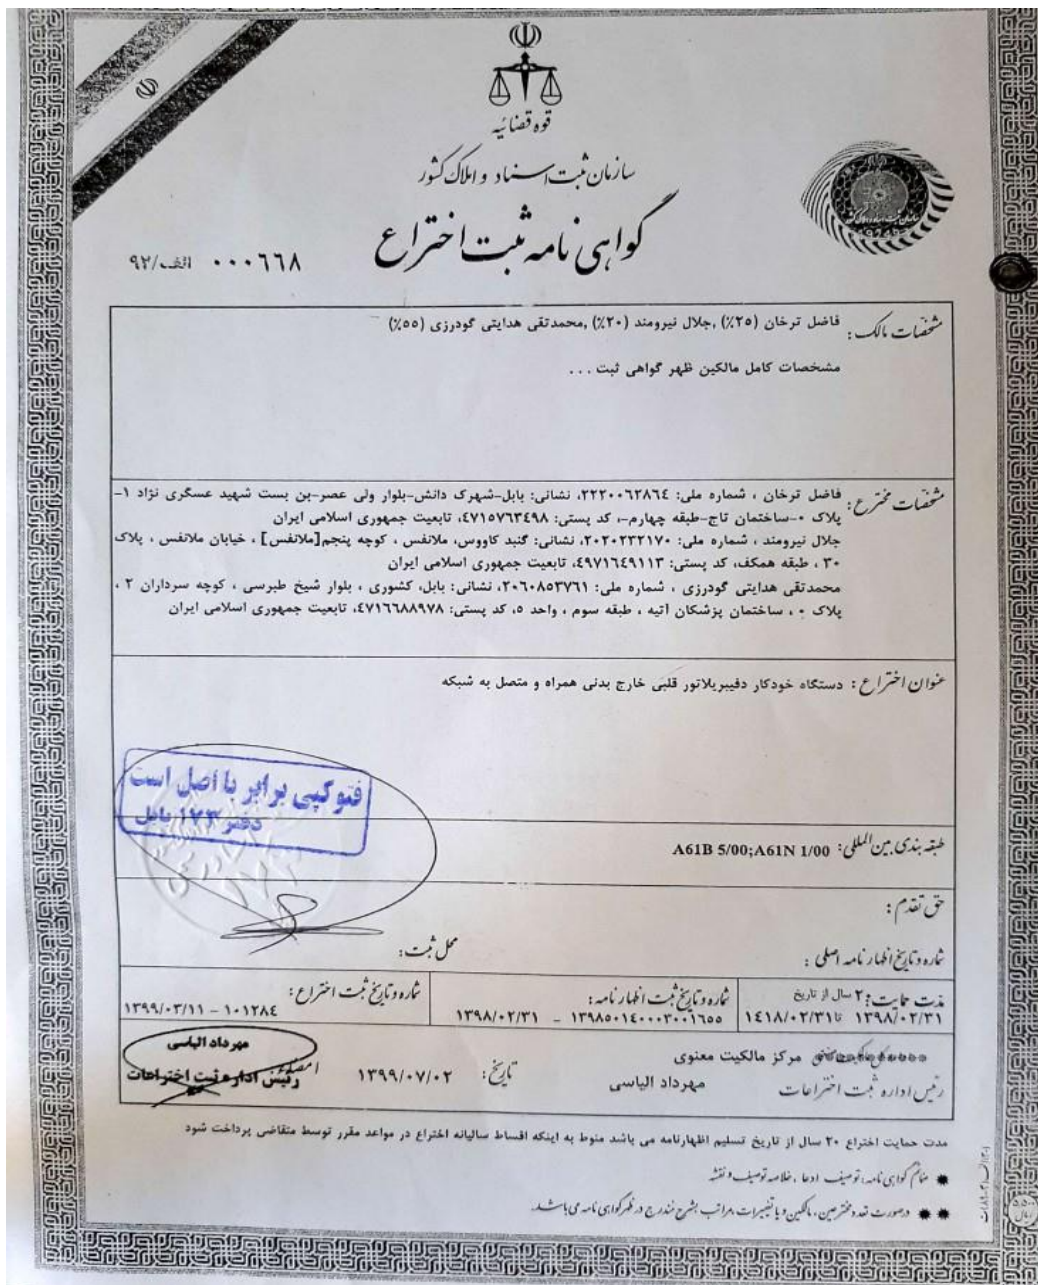 قوه قضائیه
سازمان ثبت اسناد و املاک کشور
گواهی نامه ثبت اختراع
۰۰۰۶۶۸ الف/۹۲
مشخصات مالک: فاضل ترخان (۲۵٪) ,جلال نیرومند (۲۰٪) ,محمدتقی هدایتی گودرزی (۵۵٪)
مشخصات کامل مالکین ظهر گواهی ثبت ...
مشخصات مخترع: فاضل ترخان ، شماره ملی: ۲۲۲۰۰۶۲۸۶۴، نشانی: بابل-شهرک دانش-بلوار ولی عصر-بن بست شهید عسگری نژاد ۱-
پلاک ۰-ساختمان تاج-طبقه چهارم-، کد پستی: ۴۷۱۵۷۶۳۴۹۸، تابعیت جمهوری اسلامی ایران
جلال نیرومند ، شماره ملی: ۲۰۲۰۲۳۲۱۷۰، نشانی: گنبد کاووس، ملانفس ، کوچه پنجم[ملانفس] ، خیابان ملانفس ، پلاک
۳۰ ، طبقه همکف، کد پستی: ۴۹۷۱۶۴۹۱۱۳، تابعیت جمهوری اسلامی ایران
محمدتقی هدایتی گودرزی ، شماره ملی: ۲۰۶۰۸۵۳۷۶۱، نشانی: بابل، کشوری ، بلوار شیخ طبرسی ، کوچه سرداران ۲ ،
پلاک ۰ ، ساختمان پزشکان آتیه ، طبقه سوم ، واحد ۵، کد پستی: ۴۷۱۶۶۸۸۹۷۸، تابعیت جمهوری اسلامی ایران
عنوان اختراع: دستگاه خودکار دفیبریلاتور قلبی خارج بدنی همراه و متصل به شبکه
فتوکپی برابر با اصل است
دفتر ۱۲۳ بابل
طبقه بندی بین المللی: A61B 5/00;A61N 1/00
حق تقدم:
شماره و تاریخ اظهارنامه اصلی:
محل ثبت:
مدت حمایت: ۲۰ سال از تاریخ
۱۳۹۸/۰۲/۳۱ تا ۱۴۱۸/۰۲/۳۱
شماره و تاریخ ثبت اظهارنامه:
۱۳۹۸۵۰۱۴۰۰۰۳۰۰۱۶۵۵ - ۱۳۹۸/۰۲/۳۱
شماره و تاریخ ثبت اختراع:
۱۰۱۲۸۴ - ۱۳۹۹/۰۳/۱۱
مرکز مالکیت معنوی
رئیس اداره ثبت اختراعات
مهرداد الیاسی
تاریخ: ۱۳۹۹/۰۷/۰۲
امضاء:
مهرداد الیاسی
رئیس اداره ثبت اختراعات
مدت حمایت اختراع ۲۰ سال از تاریخ تسلیم اظهارنامه می باشد منوط به اینکه اقساط سالیانه اختراع در مواعد مقرر توسط متقاضی پرداخت شود
منضم گواهی نامه، توصیف، ادعا، خلاصه توصیف و نقشه
درصورت تعدد مخترعین، مالکین و یا تغییرات، مراتب بشرح مندرج در ظهر گواهی نامه می باشد.